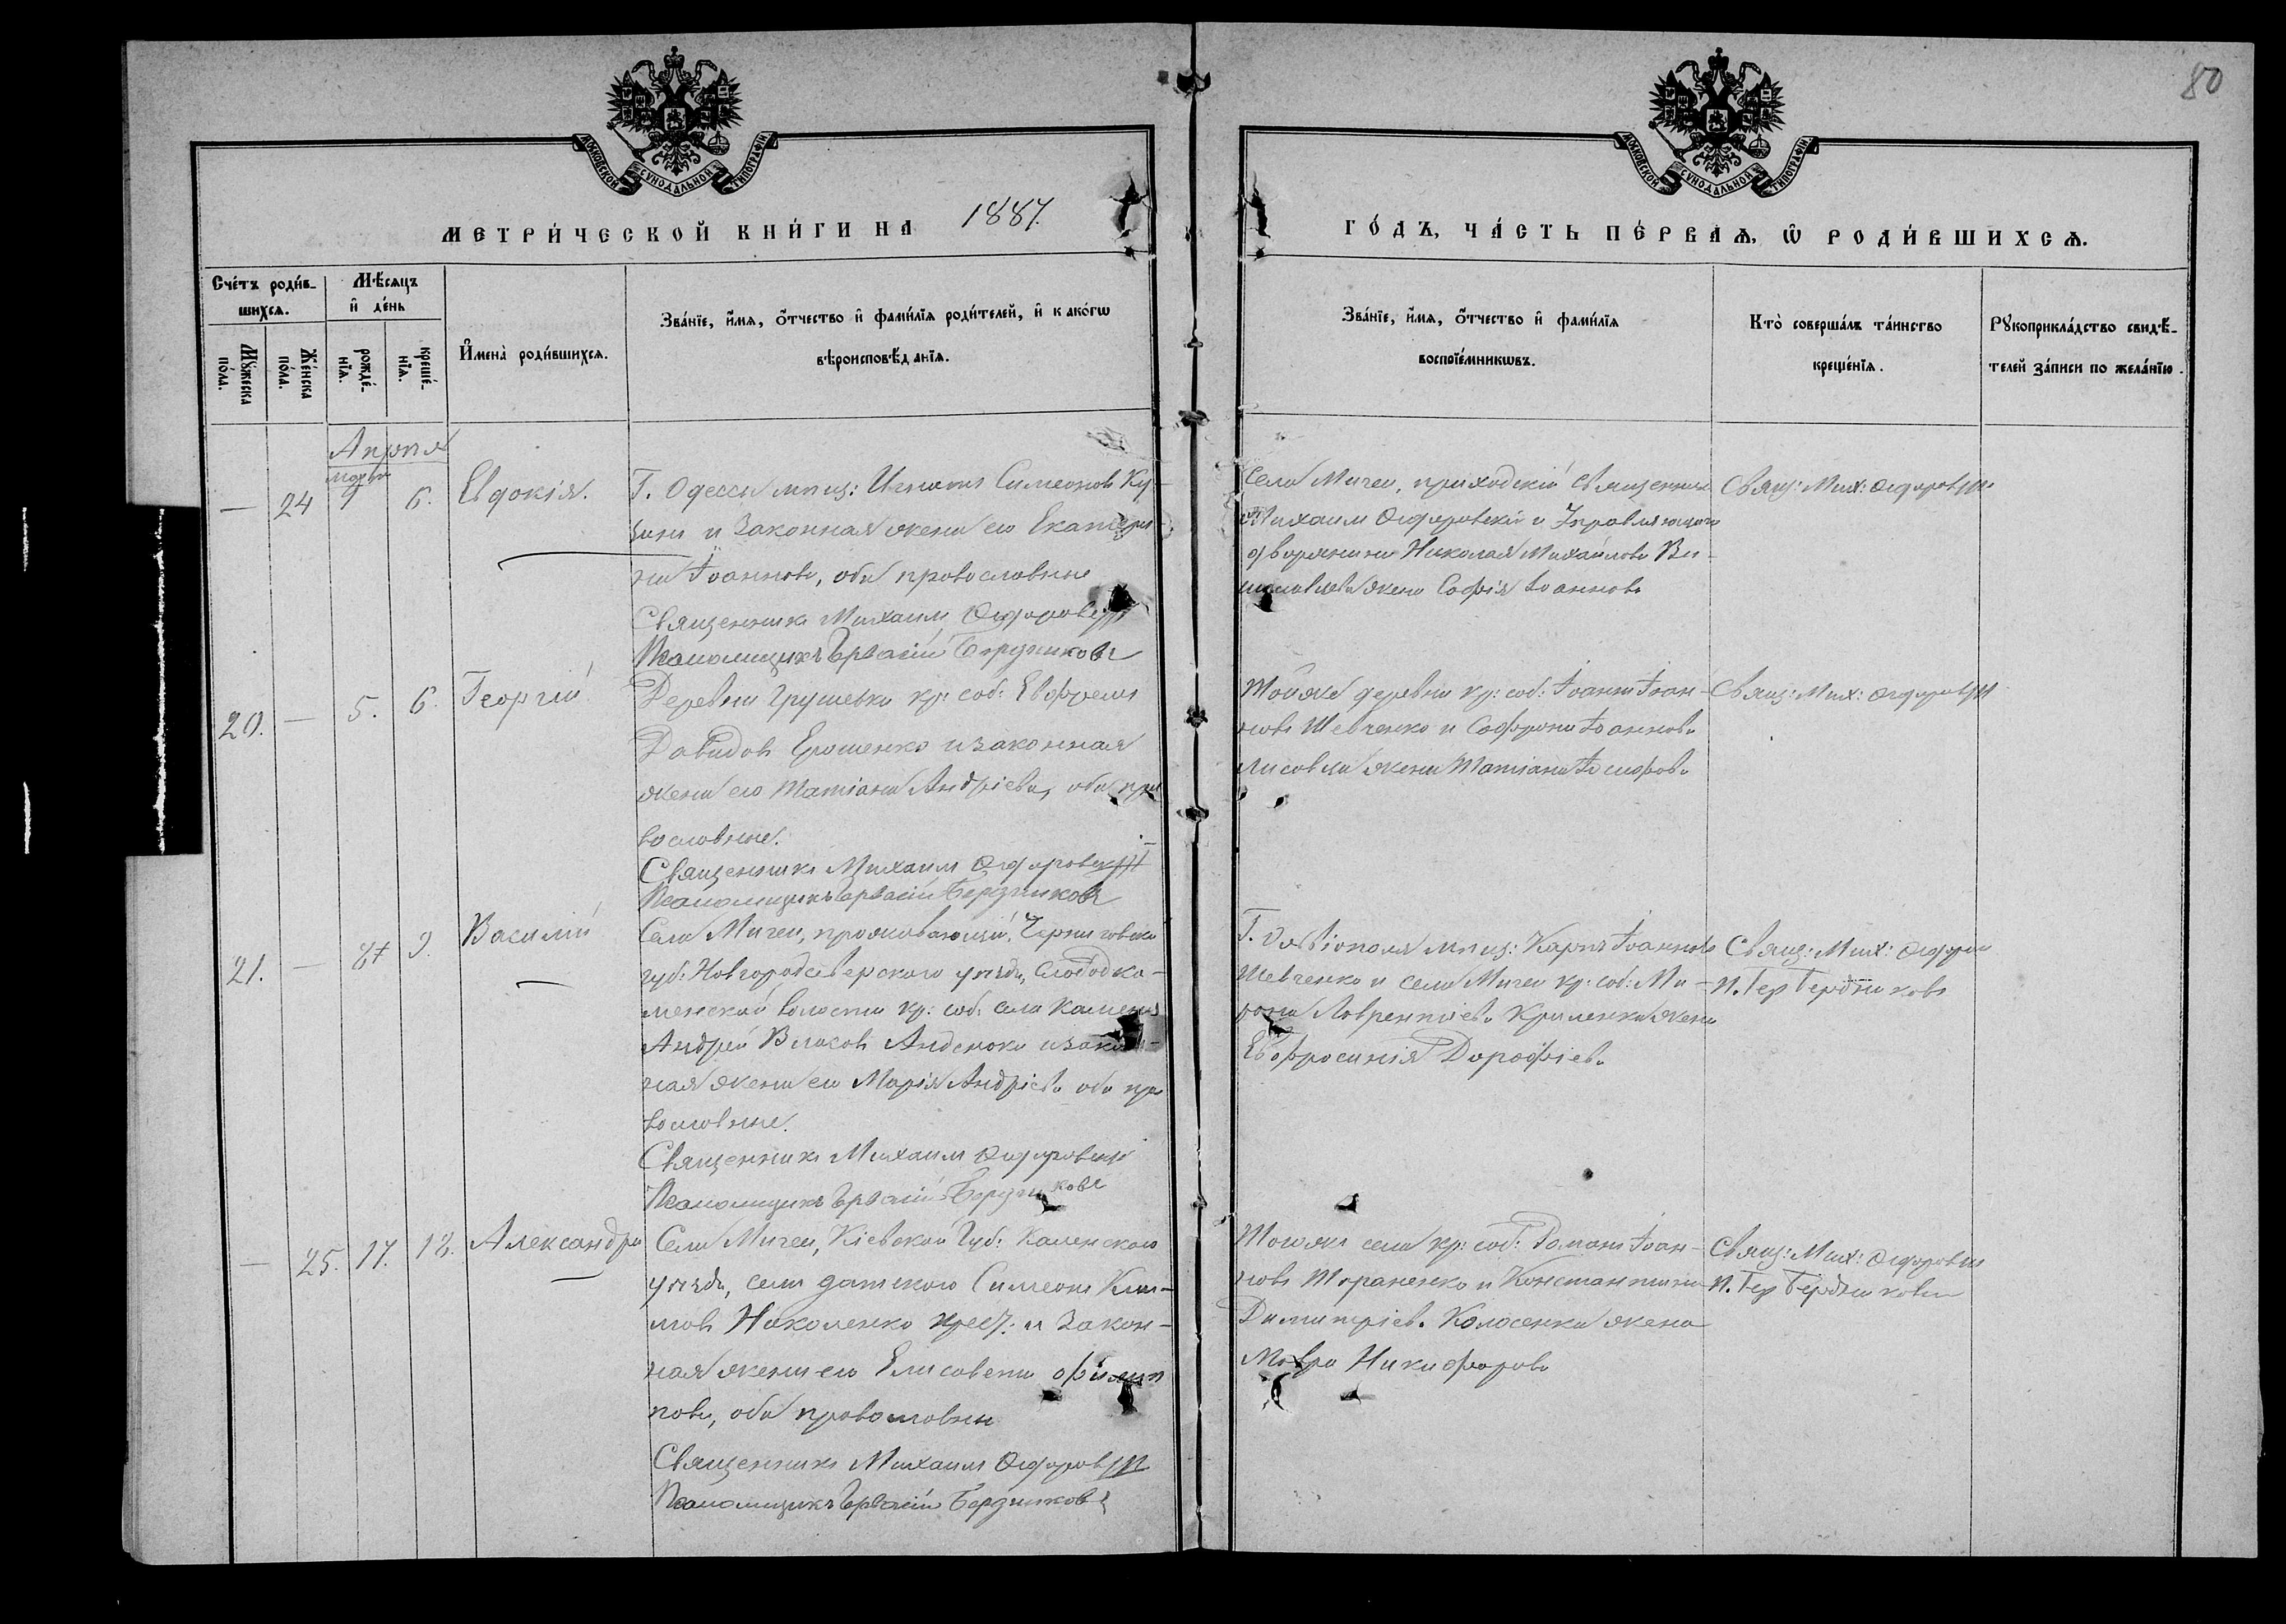 80
МОСКОВСКОЙ СѴНОДАЛЬНОЙ ТИПОГРАФІИ
МОСКОВСКОЙ СѴНОДАЛЬНОЙ ТИПОГРАФІИ
МЕТРИ́ЧЕСКОЙ КНИ́ГИ НА 1887.
ГО́ДЪ, ЧА́СТЬ ПЕ́РВАѦ, Ѡ РОДИ́ВШИХСѦ.
Сче́тъ роди́вшихсѧ.
Мꙋ́жеска по́ла.
Же́нска по́ла.
Мѣ́сѧцъ и҆ де́нь
рожде́нїѧ.
креще́нїѧ.
И҆мена̀ роди́вшихсѧ.
Зва́нїе, и҆́мѧ, ѻ҆́тчество и҆ фами́лїѧ роди́телей, и҆ како́гѡ
вѣроисповѣ́данїѧ.
Зва́нїе, и҆́мѧ, ѻ҆́тчество и҆ фами́лїѧ
воспрїе́мникѡвъ.
Кто̀ соверша́лъ та́инство
креще́нїѧ.
Рꙋкоприкла́дство свидѣ́-
телей за́писи по жела́нїю.
Апрѣля
марта
— 24 6. Евдокія.
Г. Одессы мѣщ: Игнатій Симеоновъ Ку-
и законная жена его Екатери-
на Іоаннова, оба православные
Священникъ Михаилъ
Псаломщикъ Гервасій Бердниковъ
Села Мигеи, приходскій Священникъ
Михаилъ и Управляющаго
дворянина Николая Михайлова Ви-
жена Софія Іоаннова
Свящ: Мих:
20. — 5. 6. Георгій
Деревни Грушевки кр: соб: Евфремъ
Давидовъ Ерошенко и законная
жена его Татіана Андріева, оба пра
вославные.
Священникъ Михаилъ
Псаломщикъ Гервасій Бердниковъ
Тойже деревни кр: соб: Іоаннъ Іоан-
новъ Шевченко и Софрона Іоаннова
жена Татіана
Свящ: Мих:
21. — 9. Василій
Села Мигеи, проживающій Черниговской
губ: Новгородсѣверскаго уѣзда, Слободко-
менской волости кр: соб: села Камень
Андрей Власовъ и закон-
ная жена его Марія Андріева оба пра
вославные.
Священникъ Михаилъ
Псаломщикъ Гервасій Бердниковъ
Г. мѣщ: Карпъ Іоанновъ
Шевченко и села Мигеи кр: соб: Ми-
рона Лаврентіева жена
Евфросинія Дорофіева
Свящ: Мих:
П. Гер Бердниковъ
— 25. 17. 18. Александра
Села Мигеи, Кіевской Губ:
уѣзда, села Симеонъ Кли-
мовъ Николенко крест: и закон-
ная жена его Елисавета Филип
пова, оба православны
Священникъ Михаилъ
Псаломщикъ Гервасій Бердниковъ
Тогоже села кр: соб: Романъ Іоан-
новъ Тараненко и Константина
Димитріева Колосенка жена
Мавра Никифорова
Свящ: Мих:
П. Гер Бердниковъ